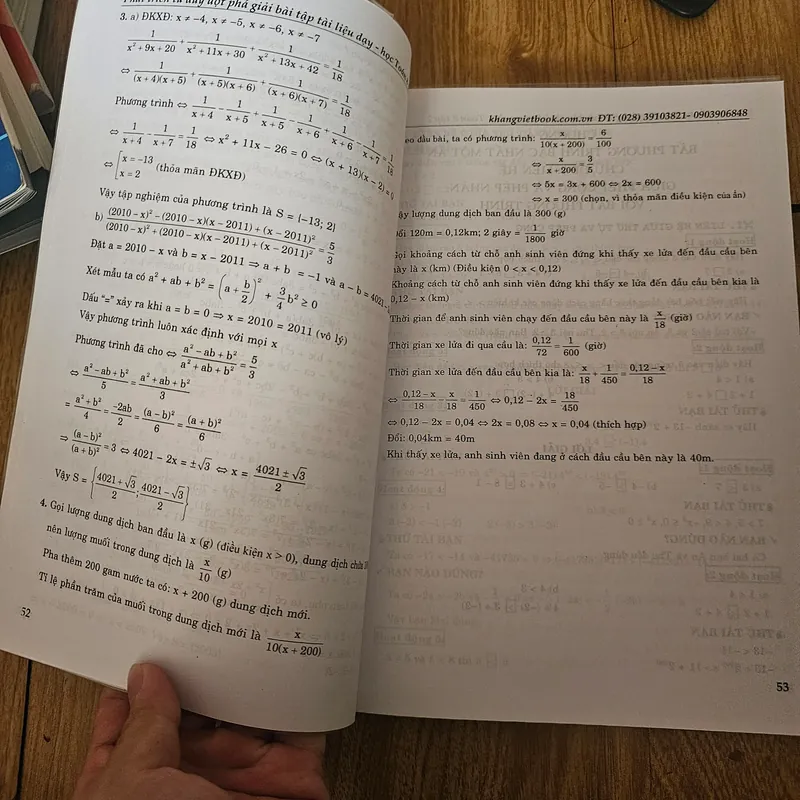 Phát triển tư duy đột phá giải bài tập tài liệu dạy - học Toán
3. a) ĐKXĐ: x ≠ −4, x ≠ −5, x ≠ −6, x ≠ −7
1/(x² + 9x + 20) + 1/(x² + 11x + 30) + 1/(x² + 13x + 42) = 1/18
⇔ 1/((x + 4)(x + 5)) + 1/((x + 5)(x + 6)) + 1/((x + 6)(x + 7)) = 1/18
Phương trình ⇔ 1/(x + 4) − 1/(x + 5) + 1/(x + 5) − 1/(x + 6) + 1/(x + 6) − 1/(x + 7) = 1/18
⇔ 1/(x + 4) − 1/(x + 7) = 1/18 ⇔ x² + 11x − 26 = 0 ⇔ (x + 13)(x − 2) = 0
⇔ [x = −13
x = 2 (thỏa mãn ĐKXĐ)
Vậy tập nghiệm của phương trình là S = {−13; 2}
b) ((2010 − x)² − (2010 − x)(x − 2011) + (x − 2011)²)/((2010 − x)² + (2010 − x)(x − 2011) + (x − 2011)²) = 5/3
Đặt a = 2010 − x và b = x − 2011 ⇒ a + b = −1 và a − b = 4021 −
Xét mẫu ta có a² + ab + b² = (a + b/2)² + 3/4 b² ≥ 0
Dấu “=” xảy ra khi a = b = 0 ⇒ x = 2010 = 2011 (vô lý)
Vậy phương trình luôn xác định với mọi x
Phương trình đã cho ⇔ (a² − ab + b²)/(a² + ab + b²) = 5/3
⇔ (a² − ab + b²)/5 = (a² + ab + b²)/3
= (a² + b²)/4 = −2ab/2 = (a − b)²/6 = (a + b)²/6
⇒ (a − b)²/(a + b)² = 3 ⇔ 4021 − 2x = ±√3 ⇔ x = (4021 ± √3)/2
Vậy S = {(4021 + √3)/2; (4021 − √3)/2}
4. Gọi lượng dung dịch ban đầu là x (g) (điều kiện x > 0), dung dịch chứa
nên lượng muối trong dung dịch là x/10 (g)
Pha thêm 200 gam nước ta có: x + 200 (g) dung dịch mới.
Tỉ lệ phần trăm của muối trong dung dịch mới là x/(10(x + 200))
52
khangvietbook.com.vn ĐT: (028) 39103821- 0903906848
đầu bài, ta có phương trình: x/(10(x + 200)) = 6/100
⇔ x/(x + 200) = 3/5
⇔ 5x = 3x + 600 ⇔ 2x = 600
⇔ x = 300 (chọn, vì thỏa mãn điều kiện của ẩn)
lượng dung dịch ban đầu là 300 (g)
120m = 0,12km; 2 giây = 1/1800 giờ
Gọi khoảng cách từ chỗ anh sinh viên đứng khi thấy xe lửa đến đầu cầu bên
này là x (km) (Điều kiện 0 < x < 0,12)
Khoảng cách từ chỗ anh sinh viên đứng khi thấy xe lửa đến đầu cầu bên kia là
0,12 − x (km)
Thời gian để anh sinh viên chạy đến đầu cầu bên này là x/18 (giờ)
Thời gian xe lửa đi qua cầu là: 0,12/72 = 1/600 (giờ)
Thời gian xe lửa đến đầu cầu bên kia là: x/18 + 1/450 = (0,12 − x)/18
⇔ (0,12 − x)/18 − x/18 = 1/450 ⇔ 0,12 − 2x = 18/450
⇔ 0,12 − 2x = 0,04 ⇔ 2x = 0,08 ⇔ x = 0,04 (thích hợp)
Đổi: 0,04km = 40m
Khi thấy xe lửa, anh sinh viên đang ở cách đầu cầu bên này là 40m.
53